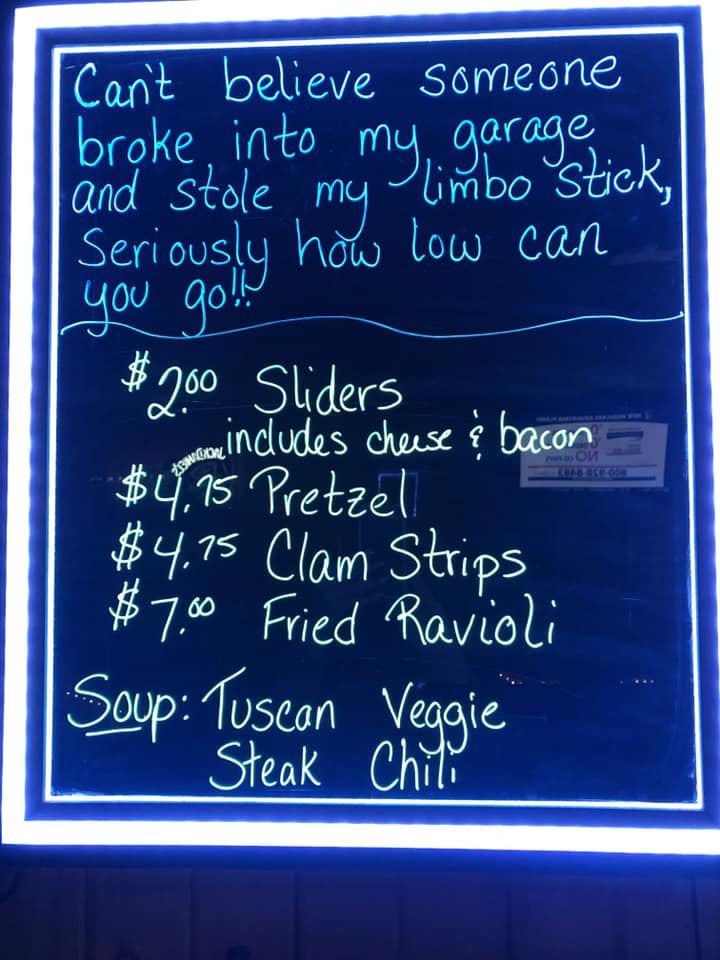 Can't believe someone
broke into my garage
and stole my limbo stick,
Seriously how low can
you go!!
$2.00 Sliders
includes cheese & bacon
$4.75 Pretzel
$4.75 Clam Strips
$7.00 Fried Ravioli
Soup: Tuscan Veggie
Steak Chili
NO
800-928-8483